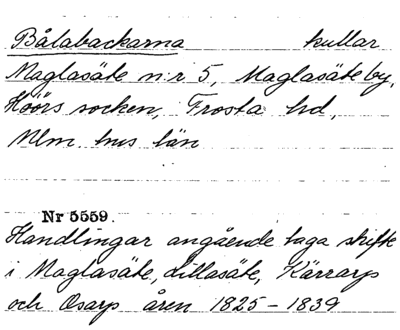 Bålabackarna kullar
Maglasäte n:r 5, Maglasäte by,
Höörs socken, Frosta hd,
Mlm. hus län
Nr 5559.
Handlingar angående laga skifte
i Maglasäte, Lillasäte, Kärrarp
och Osarp åren 1825-1839